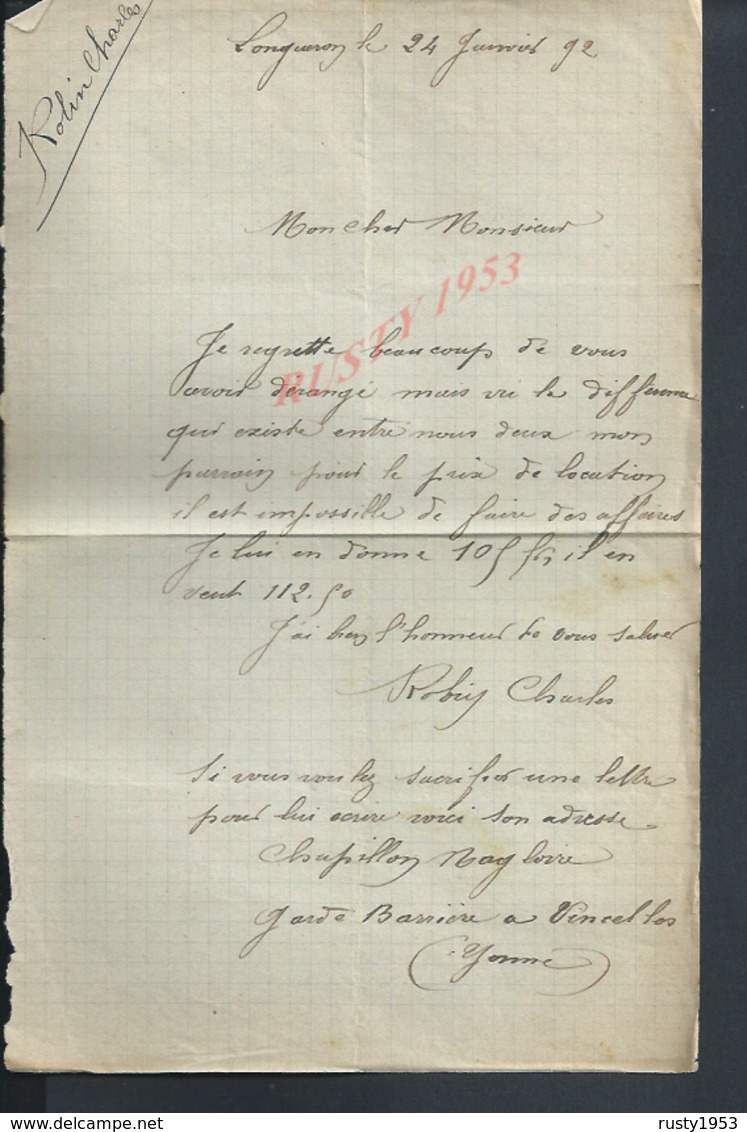 Robin Charles
Longueron le 24 Janvier 92
Mon cher Monsieur
RUSTY 1953
Je regrette beaucoup de vous
avoir dérangé mais vu la différence
qui existe entre nous deux mon
parrain pour le prix de location
il est impossille de faire des affaires
Je lui en donne 105 frs, il en
veut 112.50
J'ai bien l'honneur de vous saluer
Robin Charles
Si vous voulez sacrifier une lettre
pour lui ecrire voici son adresse
Chapillon Magloire
Garde Barrière a Vincelles
(Yonne)
delcampe.net
rusty1953